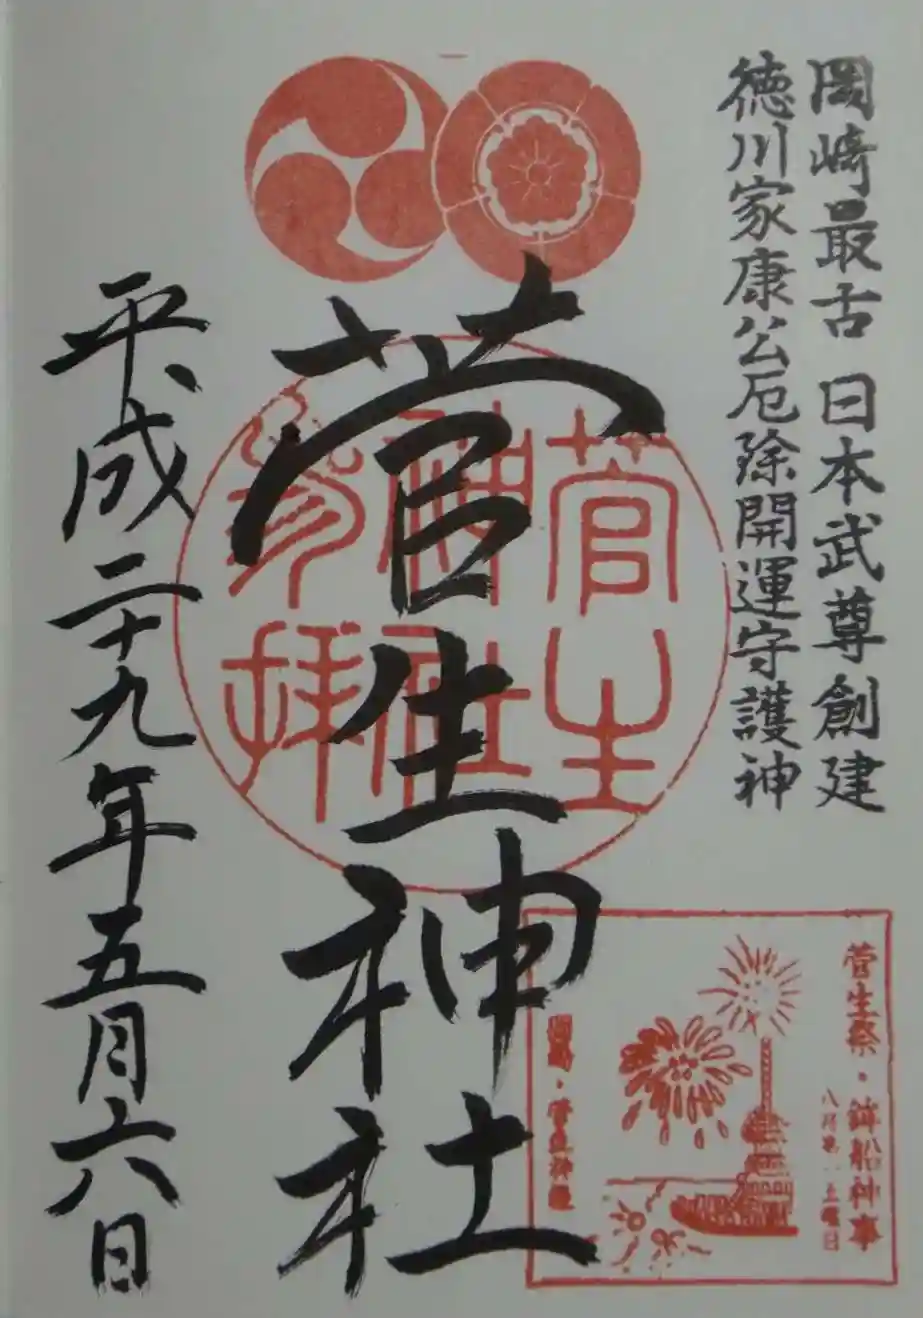 岡崎最古 日本武尊創建
徳川家康公厄除開運守護神
菅生神社
平成二十九年五月六日
菅生
神社
参拝
菅生祭・鉾船神事
八月第一土曜日
岡崎・菅生神社